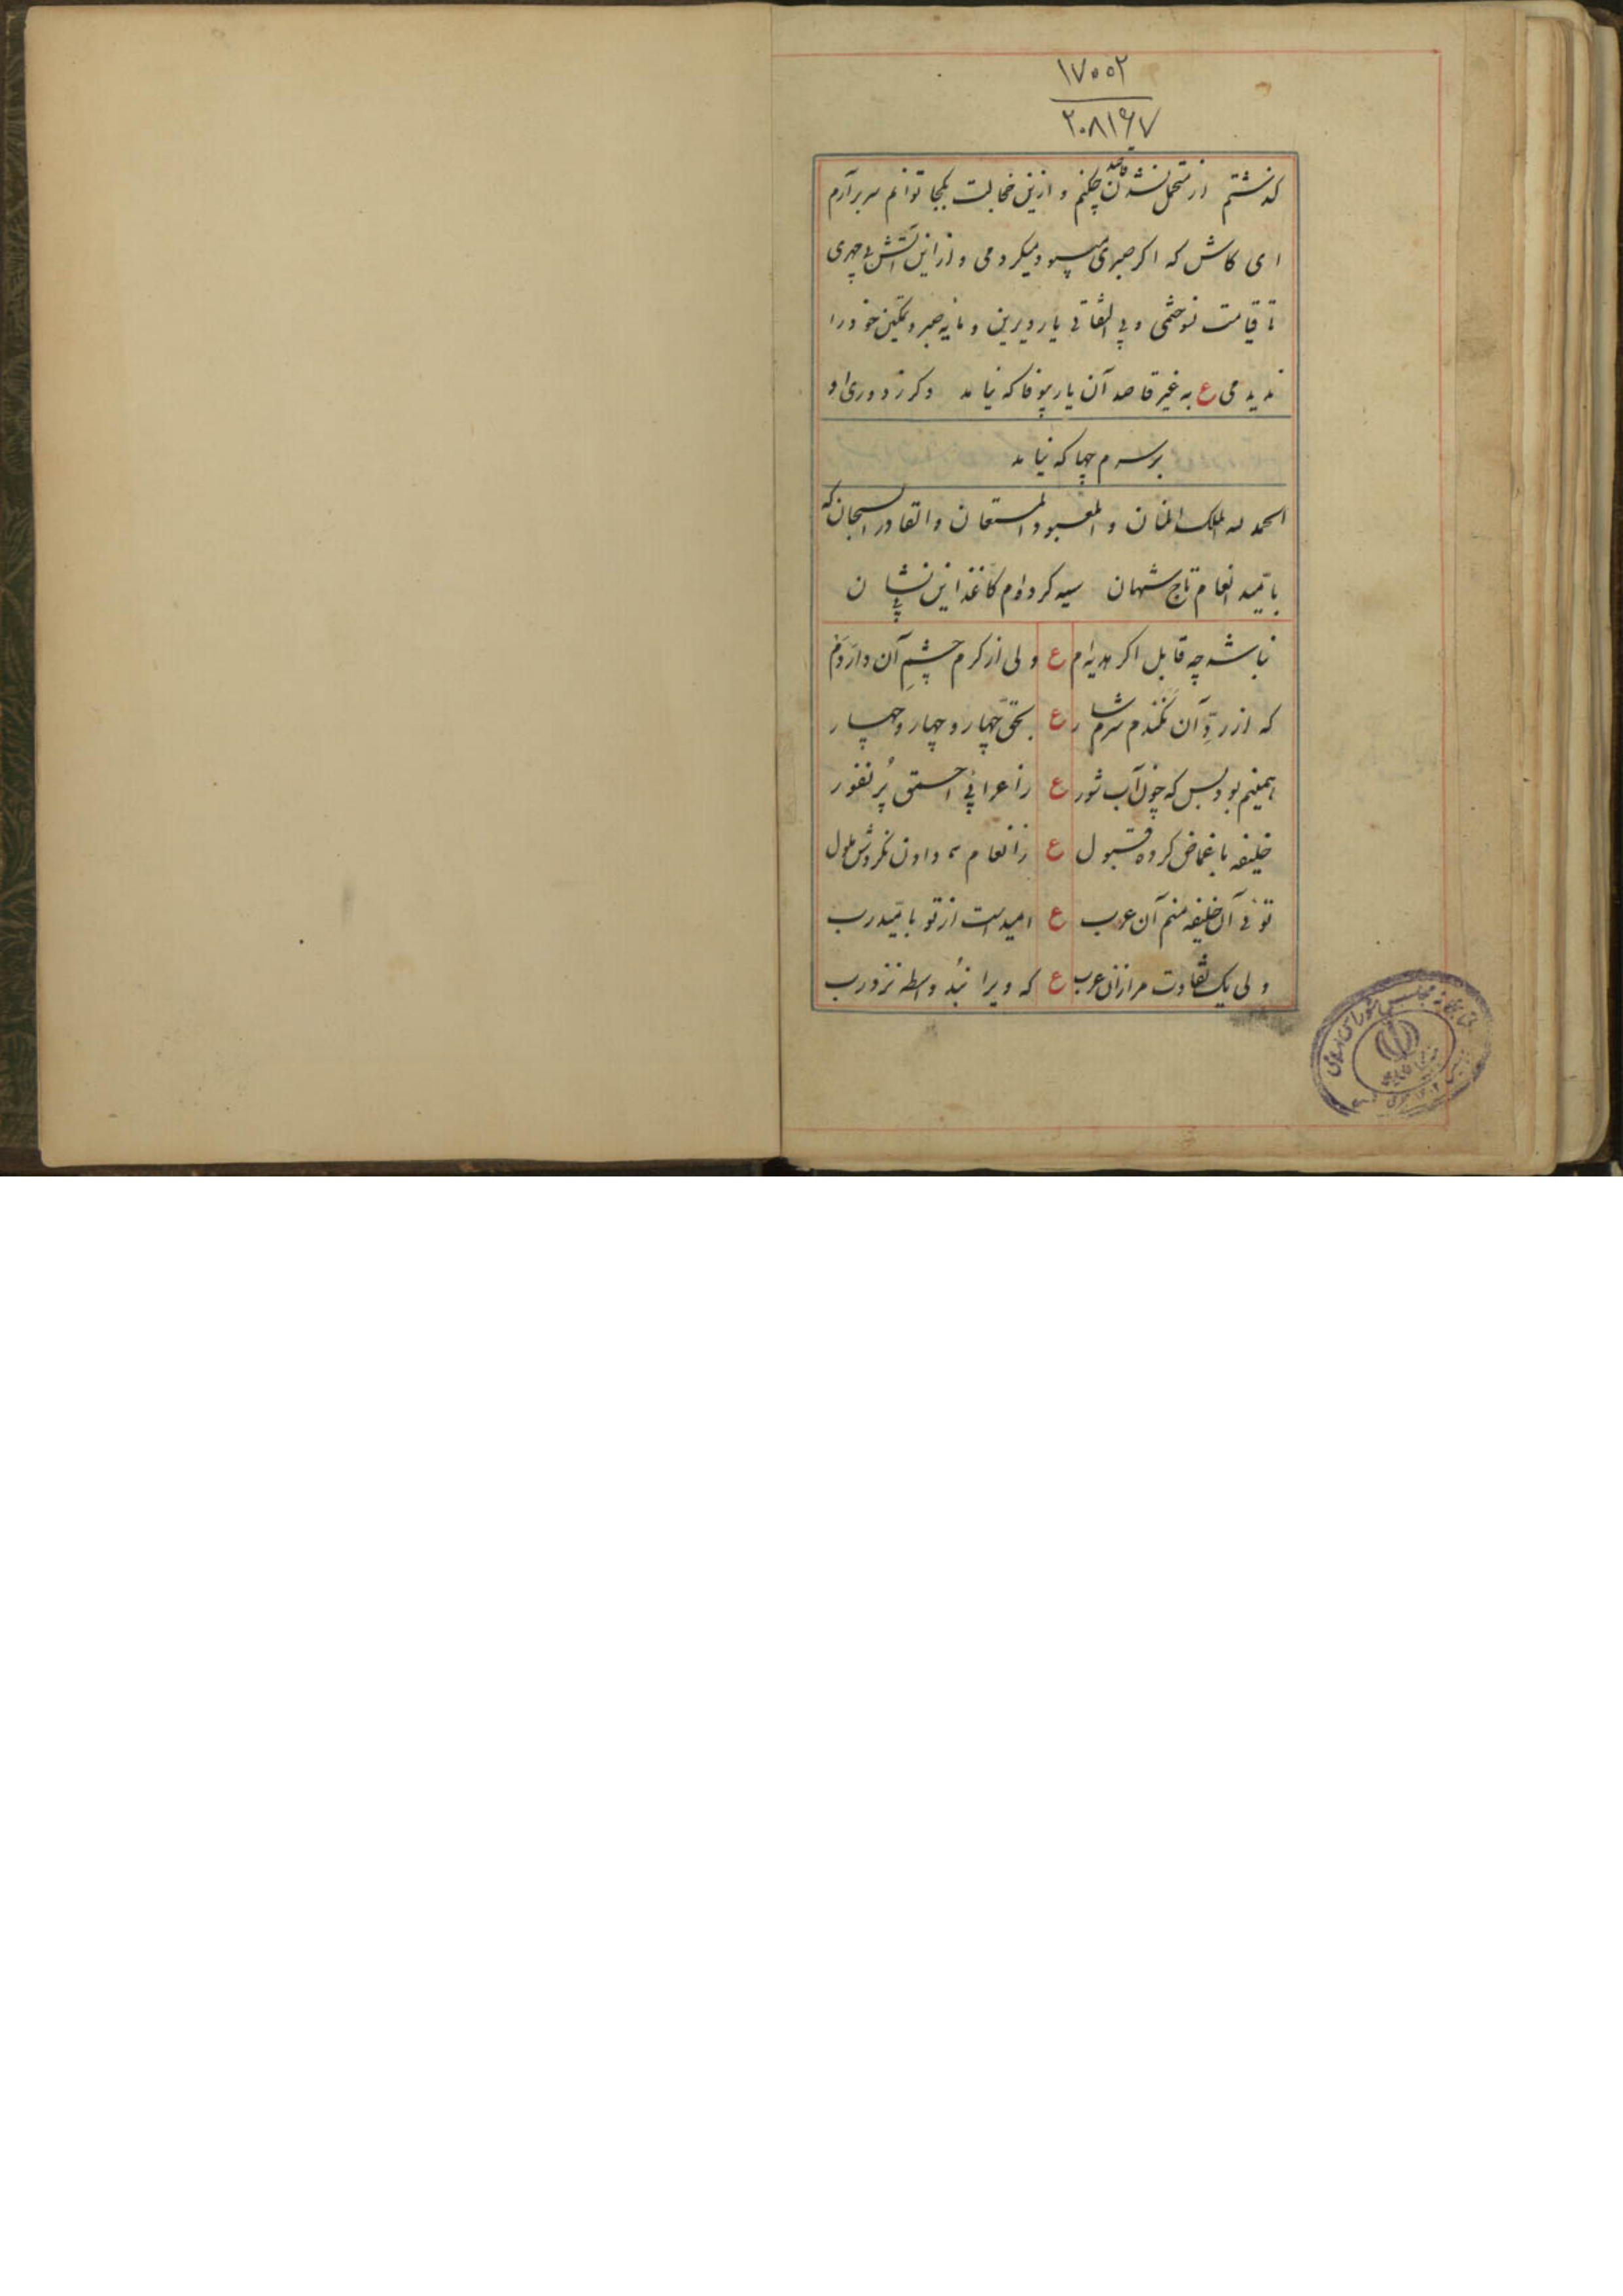 ۱۷۰۰۲
۲۰۸۱۶۷
گذشتم از متحمل نشدن چکنم و ازین خجالت بکجا توانم سر برآرم
ای کاش که اگر صبری میبود میکردمی و از این آتش بی
تا قیامت نسوختمی و بی التفاتی یار دیرین و مایه صبر و تمکین خود را
ندیدمی ع به غیر قاصد آن یار بیوفا که نیامد دگر ز دوری او
بر سرم چها که نیامد
الحمد لله الملک المنان و المعبود المستعان و القادر السبحان که
بامّید انعام تاج شهان سیه کرده‌ام کاغذ این نشان
نباشد چه قابل اگر هدیه‌ام ع ولی از کرم چشمِ آن دارَوَم
که از ردِّ آن نکندم شرمسار ع بحقّ چهار و چهار و چهار
همینم بود بس که چون آب شور ع ز اعرابی احمق پُر نفور
خلیفه باغماض کرده قبول ع ز انعام دادن نکردش ملول
توئی آن خلیفه منم آن عرب ع امید است از تو بامّید رب
ولی یک تفاوت مرا زان عرب ع که ویرا نبُد واسطه نزد رب
کتابخانه مجلس شورای اسلامی